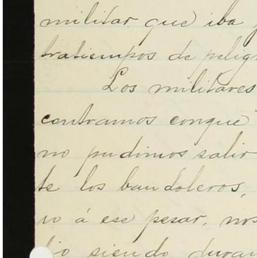 militar que iba
tratiempos de pelig
Los militares
contramos conque
no pudimos salir
te los bandoleros,
io á ese pesar, nos
tio siendo duran